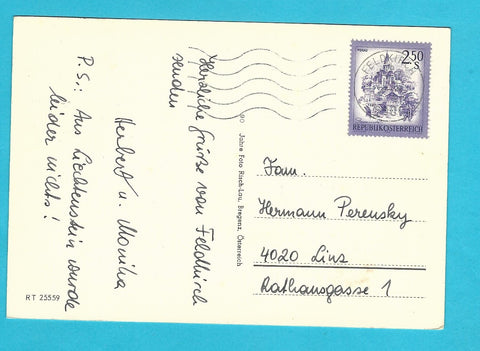 Herzliche Grüße von Feldkirch
senden
Herbert u. Monika
P.S.: Aus Liechtenstein wurde
leider nichts!
RT 25559
90 Jahre Foto Risch-Lau, Bregenz, Österreich
2.50
S
FELDKIRCH
REPUBLIK ÖSTERREICH
Fam.
Hermann Perensky
4020 Linz
Rathausgasse 1